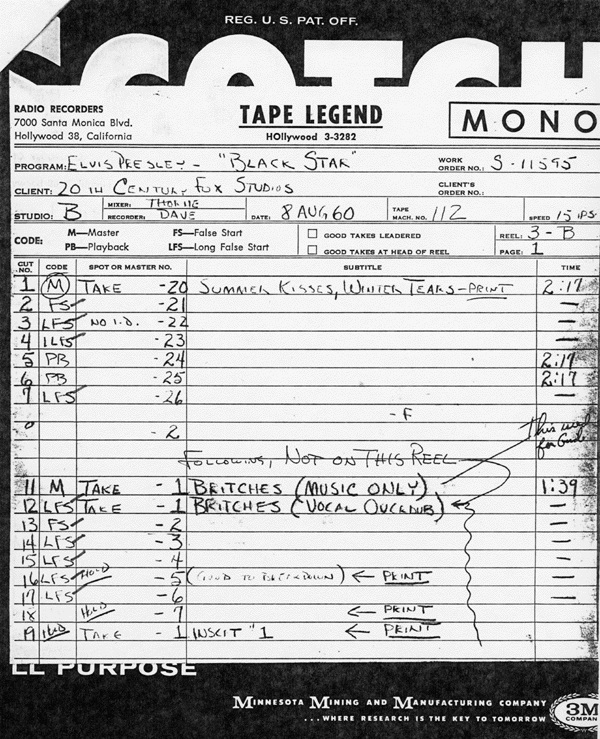 REG. U. S. PAT. OFF.
SCOTCH
RADIO RECORDERS
7000 Santa Monica Blvd.
Hollywood 38, California
TAPE LEGEND
HOllywood 3-3282
MONO
PROGRAM: ELVIS PRESLEY - "BLACK STAR"
WORK ORDER NO.: S-11595
CLIENT: 20TH CENTURY FOX STUDIOS
CLIENT'S ORDER NO.:
STUDIO: B MIXER: THORNE RECORDER: DAVE DATE: 8 AUG 60 TAPE MACH. NO. 112 SPEED 15 IPS.
CODE: M—Master FS—False Start
PB—Playback LFS—Long False Start
GOOD TAKES LEADERED
GOOD TAKES AT HEAD OF REEL
REEL: 3-B
PAGE: 1
CUT NO. CODE SPOT OR MASTER NO. SUBTITLE TIME
1 M TAKE -20 SUMMER KISSES, WINTER TEARS - PRINT 2:17
2 FS -21 —
3 LFS NO I.D. -22 —
4 LFS -23 —
5 PB -24 2:17
6 PB -25 2:17
7 LFS -26 —
-F
- 2
This used for Guide
FOLLOWING, NOT ON THIS REEL
11 M TAKE -1 BRITCHES (MUSIC ONLY) 1:39
12 LFS TAKE -1 BRITCHES (VOCAL OVERDUB) —
13 FS -2 —
14 LFS -3 —
15 LFS -4 —
16 LFS HOLD -5 (GOOD TO BREAKDOWN) ← PRINT —
17 LFS -6 —
18 HOLD -7 ← PRINT
19 HOLD TAKE -1 INSERT #1 ← PRINT
LL PURPOSE
MINNESOTA MINING AND MANUFACTURING COMPANY
...WHERE RESEARCH IS THE KEY TO TOMORROW
3M
COMPAN